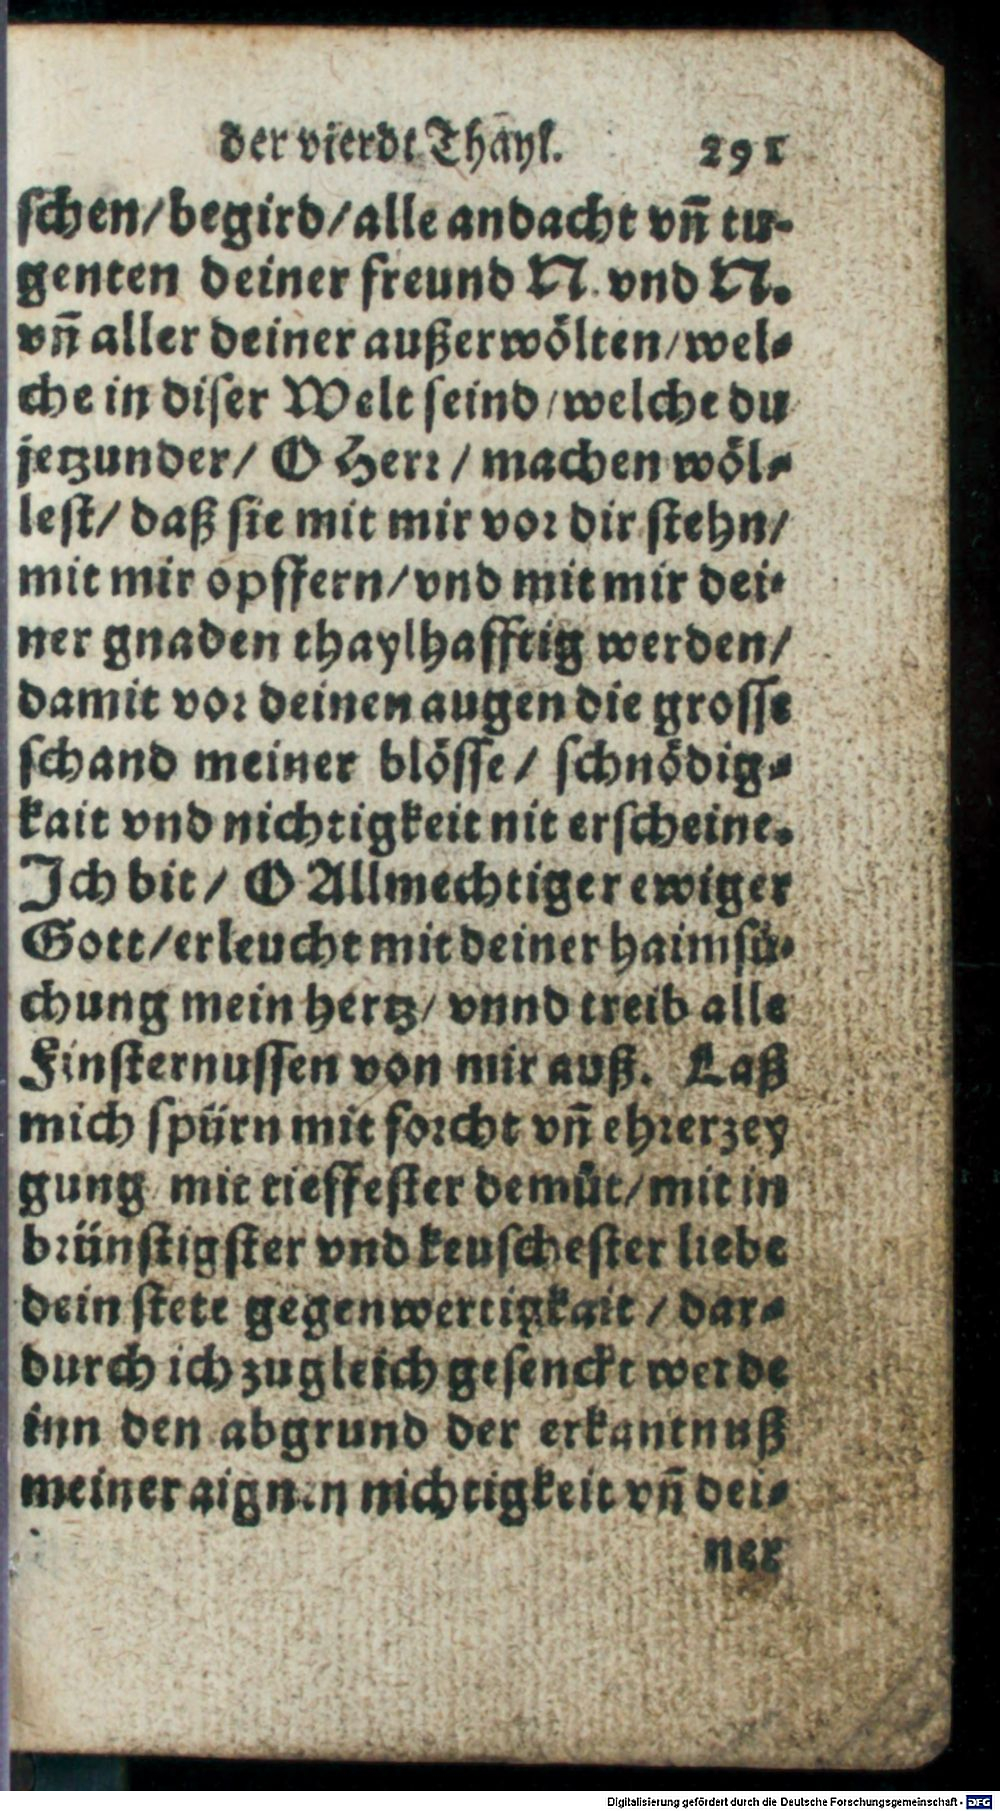 der vierdt Thayl. 291
schen/begird/alle andacht vñ tu-
genten deiner freund N. vnd N.
vñ aller deiner außerwölten/wel-
che in diser Welt seind/welche du
jetzunder/ O Herr / machen wöl-
lest/ daß sie mit mir vor dir stehn/
mit mir opffern/vnd mit mir dei-
ner gnaden thaylhafftig werden/
damit vor deinen augen die grosse
schand meiner blösse/ schnödig-
kait vnd nichtigkeit nit erscheine.
Ich bit/ O Allmechtiger ewiger
Gott/erleucht mit deiner haimsü-
chung mein hertz/ vnnd treib alle
Finsternussen von mir auß. Laß
mich spürn mit forcht vñ ehrerzey
gung mit tieffester demüt/mit in
brünstigster vnd keuschester liebe
dein stete gegenwertigkait / dar-
durch ich zugleich gesenckt werde
inn den abgrund der erkantnuß
meiner aignen nichtigkeit vñ dei-
ner
Digitalisierung gefördert durch die Deutsche Forschungsgemeinschaft - DFG